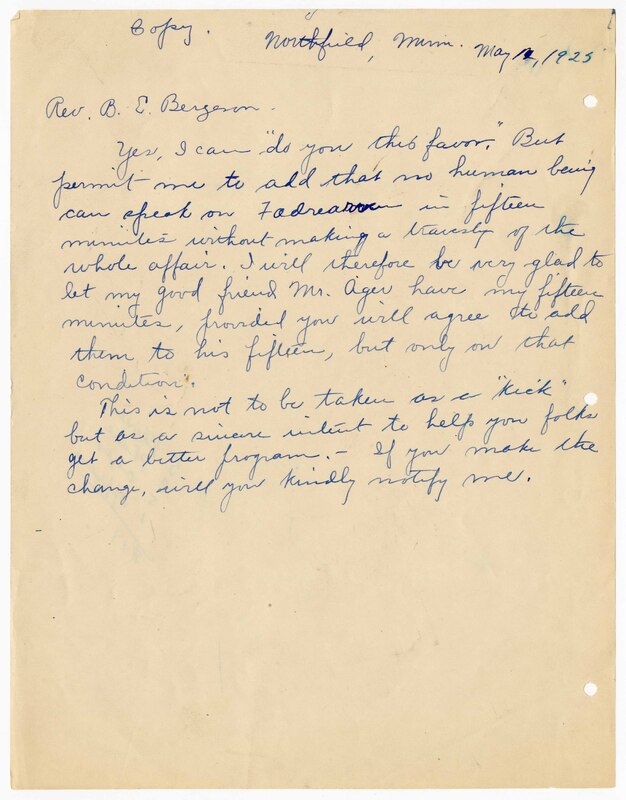 Copy.
Northfield, Minn. May 12, 1925
Rev. B. E. Bergeson.
Yes, I can "do you this favor." But
permit me to add that no human being
can speak on Fadrearven in fifteen
minutes without making a travesty of the
whole affair. I will therefore be very glad to
let my good friend Mr. Ager have my fifteen
minutes, provided you will agree to add
them to his fifteen, but only on that
condition.
This is not to be taken as a "kick"
but as a sincere intent to help you folks
get a better program. - If you make the
change, will you kindly notify me.